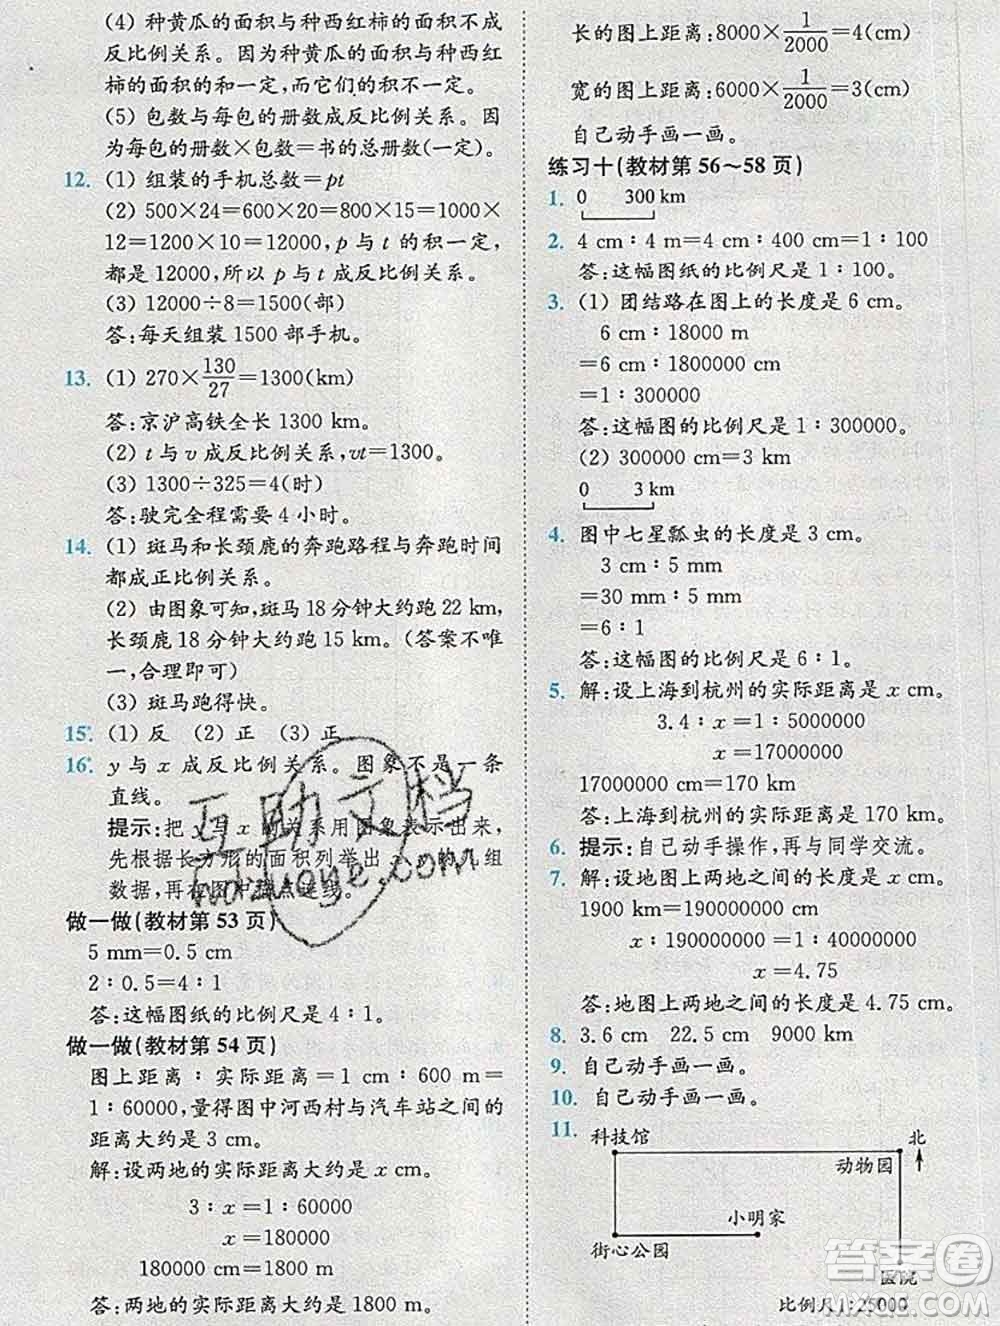 (4) 种黄瓜的面积与种西红柿的面积不成
反比例关系。因为种黄瓜的面积与种西红
柿的面积的和一定,而它们的积不一定。
(5) 包数与每包的册数成反比例关系。因
为每包的册数×包数=书的总册数(一定)。
12. (1) 组装的手机总数=pt
(2) 500×24=600×20=800×15=1000×
12=1200×10=12000,p 与 t 的积一定,
都是 12000,所以 p 与 t 成反比例关系。
(3) 12000÷8=1500(部)
答:每天组装 1500 部手机。
13. (1) 270×130/27=1300(km)
答:京沪高铁全长 1300 km。
(2) t 与 v 成反比例关系,vt=1300。
(3) 1300÷325=4(时)
答:驶完全程需要 4 小时。
14. (1) 斑马和长颈鹿的奔跑路程与奔跑时间
都成正比例关系。
(2) 由图象可知,斑马 18 分钟大约跑 22 km,
长颈鹿 18 分钟大约跑 15 km。(答案不唯
一,合理即可)
(3) 斑马跑得快。
15. (1) 反 (2) 正 (3) 正
16. y 与 x 成反比例关系。图象不是一条
直线。
提示:把 y 与 x 的关系用图象表示出来,
先根据长方形的面积列举出 x、y 的几组
数据,再在图中描点连线。
做一做(教材第 53 页)
5 mm=0.5 cm
2∶0.5=4∶1
答:这幅图纸的比例尺是 4∶1。
做一做(教材第 54 页)
图上距离∶实际距离=1 cm∶600 m=
1∶60000,量得图中河西村与汽车站之间的
距离大约是 3 cm。
解:设两地的实际距离大约是 x cm。
3∶x=1∶60000
x=180000
180000 cm=1800 m
答:两地的实际距离大约是 1800 m。
长的图上距离:8000×1/2000=4(cm)
宽的图上距离:6000×1/2000=3(cm)
自己动手画一画。
练习十(教材第 56～58 页)
1. 0 300 km
2. 4 cm∶4 m=4 cm∶400 cm=1∶100
答:这幅图纸的比例尺是 1∶100。
3. (1) 团结路在图上的长度是 6 cm。
6 cm∶18000 m
=6 cm∶1800000 cm
=1∶300000
答:这幅图的比例尺是 1∶300000。
(2) 300000 cm=3 km
0 3 km
4. 图中七星瓢虫的长度是 3 cm。
3 cm∶5 mm
=30 mm∶5 mm
=6∶1
答:这幅图的比例尺是 6∶1。
5. 解:设上海到杭州的实际距离是 x cm。
3.4∶x=1∶5000000
x=17000000
17000000 cm=170 km
答:上海到杭州的实际距离是 170 km。
6. 提示:自己动手操作,再与同学交流。
7. 解:设地图上两地之间的长度是 x cm。
1900 km=190000000 cm
x∶190000000=1∶40000000
x=4.75
答:地图上两地之间的长度是 4.75 cm。
8. 3.6 cm 22.5 cm 9000 km
9. 自己动手画一画。
10. 自己动手画一画。
11. 科技馆 北
动物园
小明家
街心公园
医院
比例尺1:25000
互助文档
hdzuoye.com
答案圈